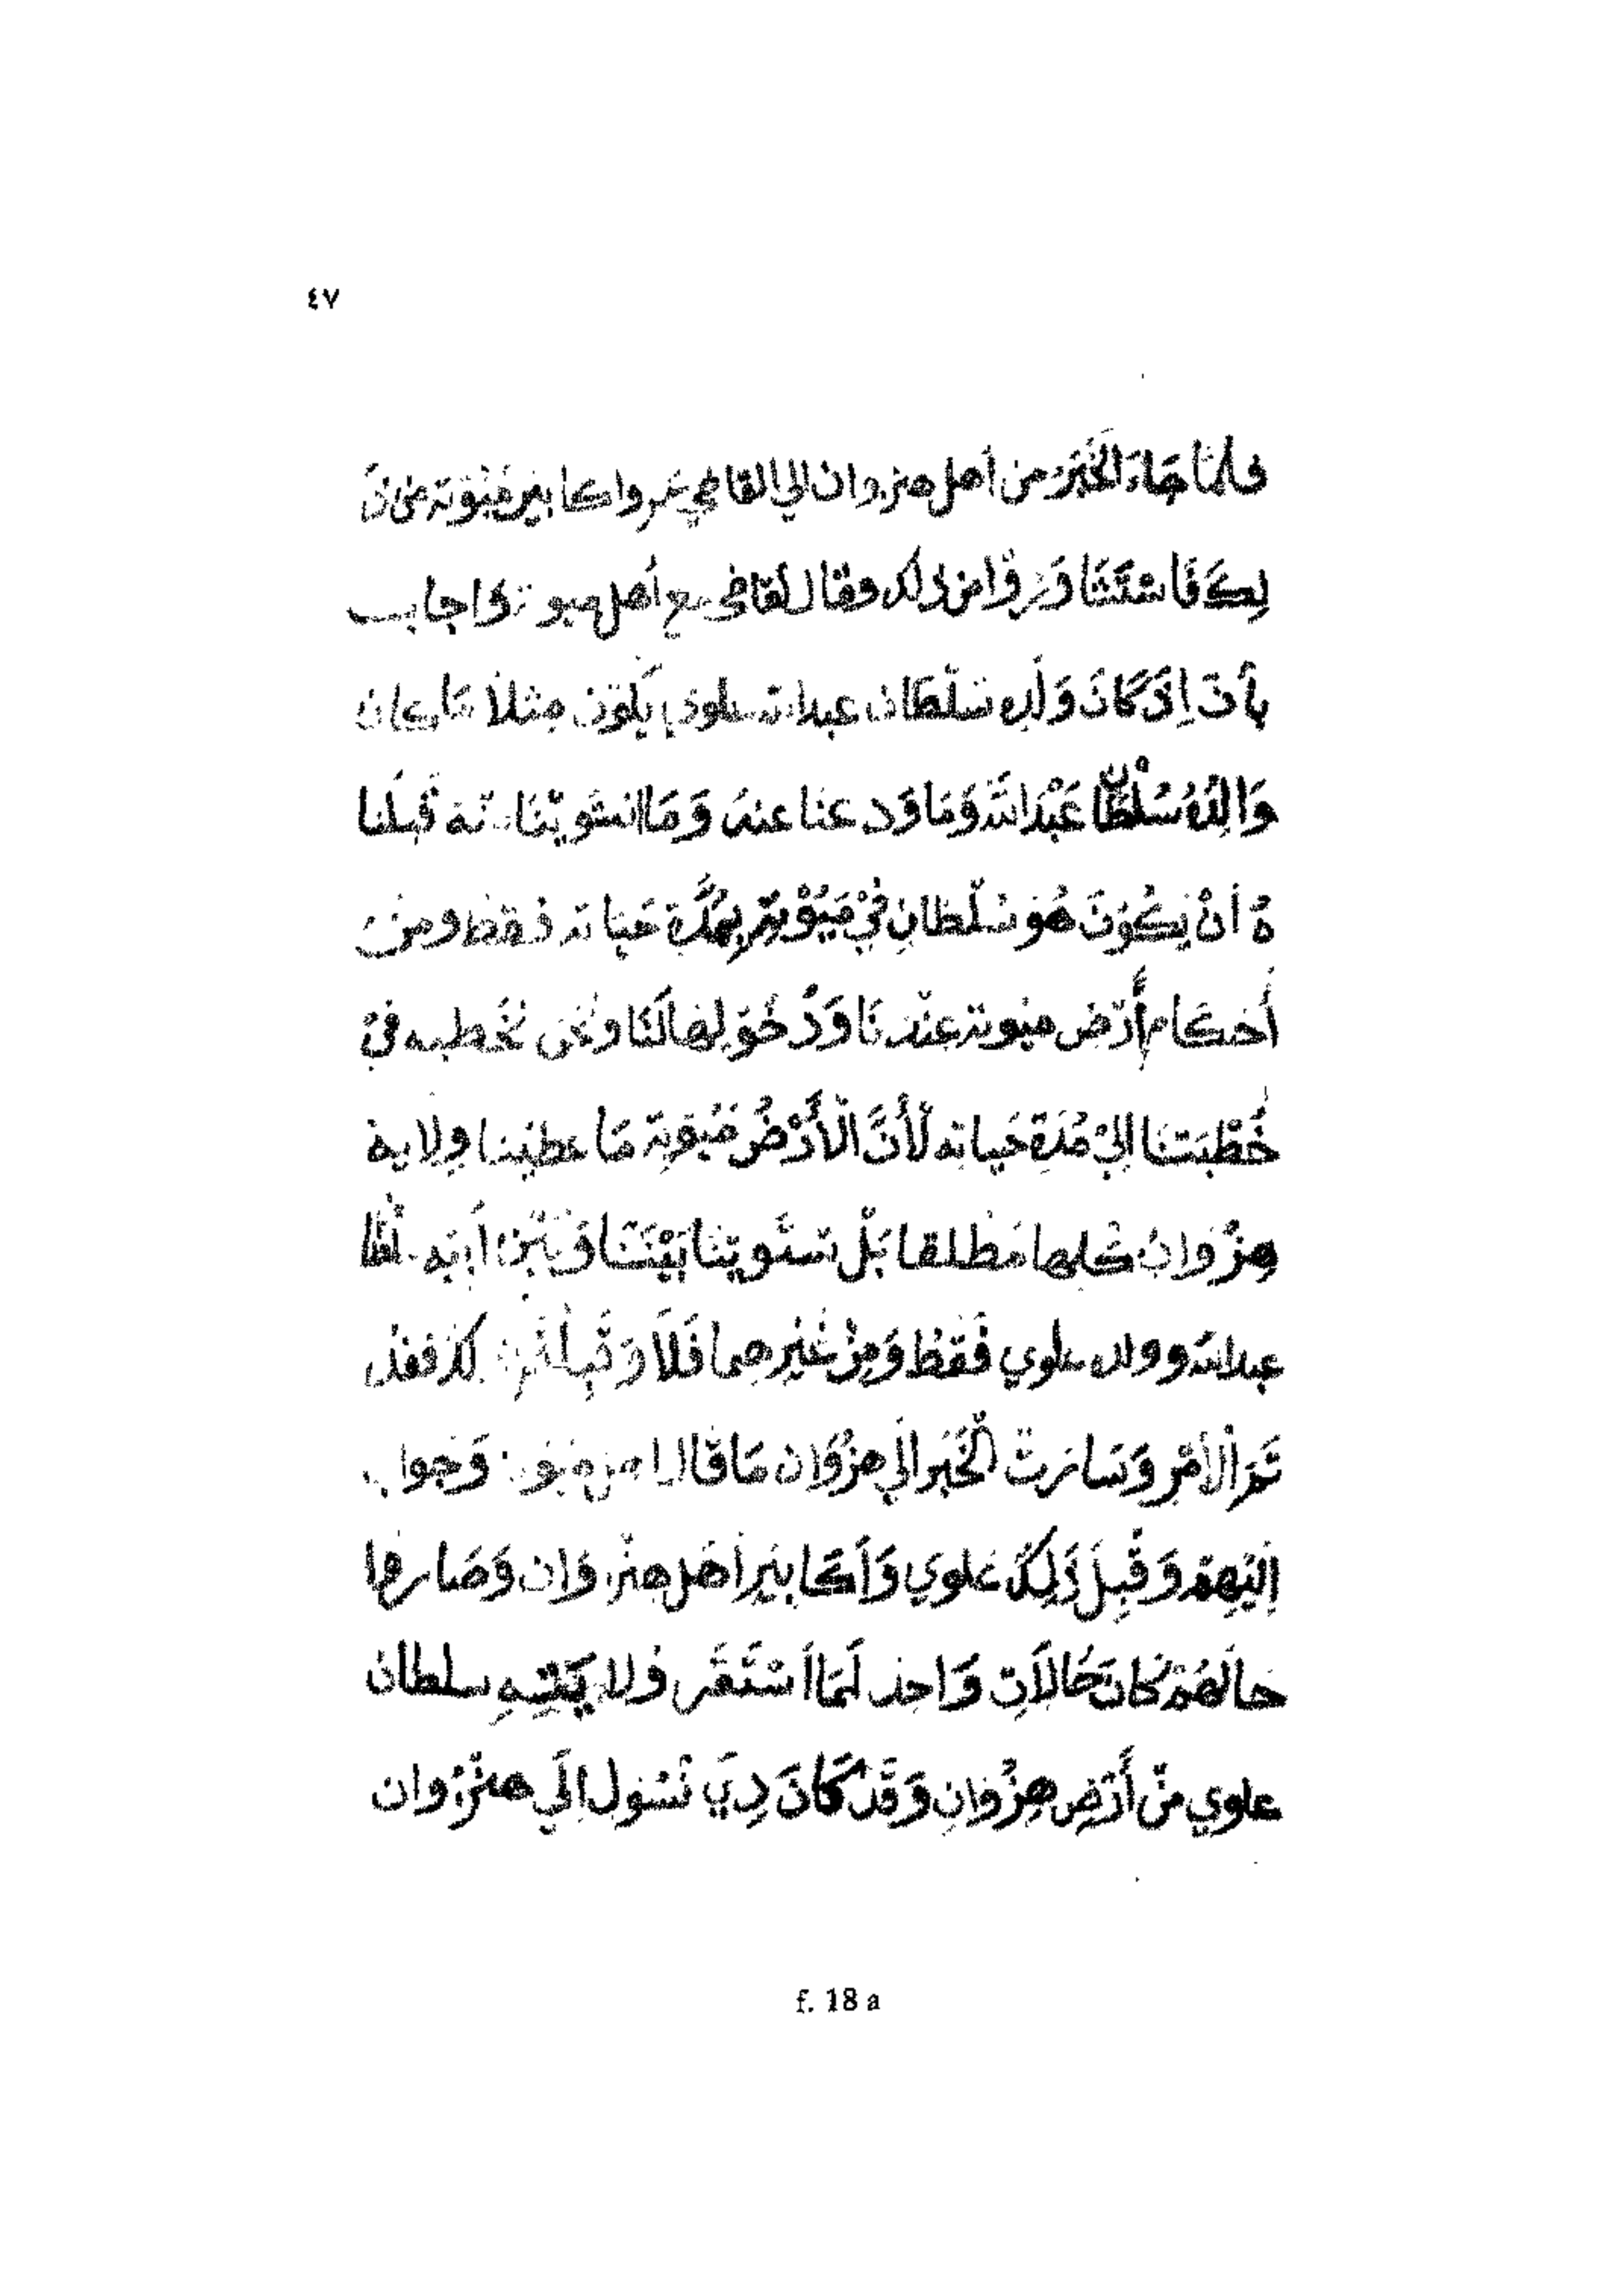 ٤٧
فلمّا جاء الخبر من أهل هنزوان الي القاضي عمر واكابير ميوتة من ذ
لك فاستشاوروا من ذلك وقال القاضي مع أهل ميوتة واجاب
بأن إذ كان ولد سلطان عبدالله علوي يكون مثلا ما كان
والده سلطا عبدالله وما ودعنا عنه وما انشويتنا قبلنا
ه أن يكون هو سلطان في ميوتة بمدّة حياته فقط ومن
أحكام أرض ميوتة عندنا ودخولها لنا ونحن نخطبه في
خطبتنا الي مدة حياته لأنّ الأرض ميوتة ما عطينا ولاية
هنزوان كلها مطلقا بل تشويتنا بيننا وبين أبيه
عبدالله وولد علوي فقط ومن غيرهما فلا
تمّ الأمر وسارت الخبر الي هنزوان ما قال وجواب
إليهم وقبل ذلك علوي وأكابير أهل هنزوان وصارها
حالهم كان حالات واحد لما استقر ولا سلطان
علوي من أرض هنزوان وقد كان الي هنزوان
f. 18 a